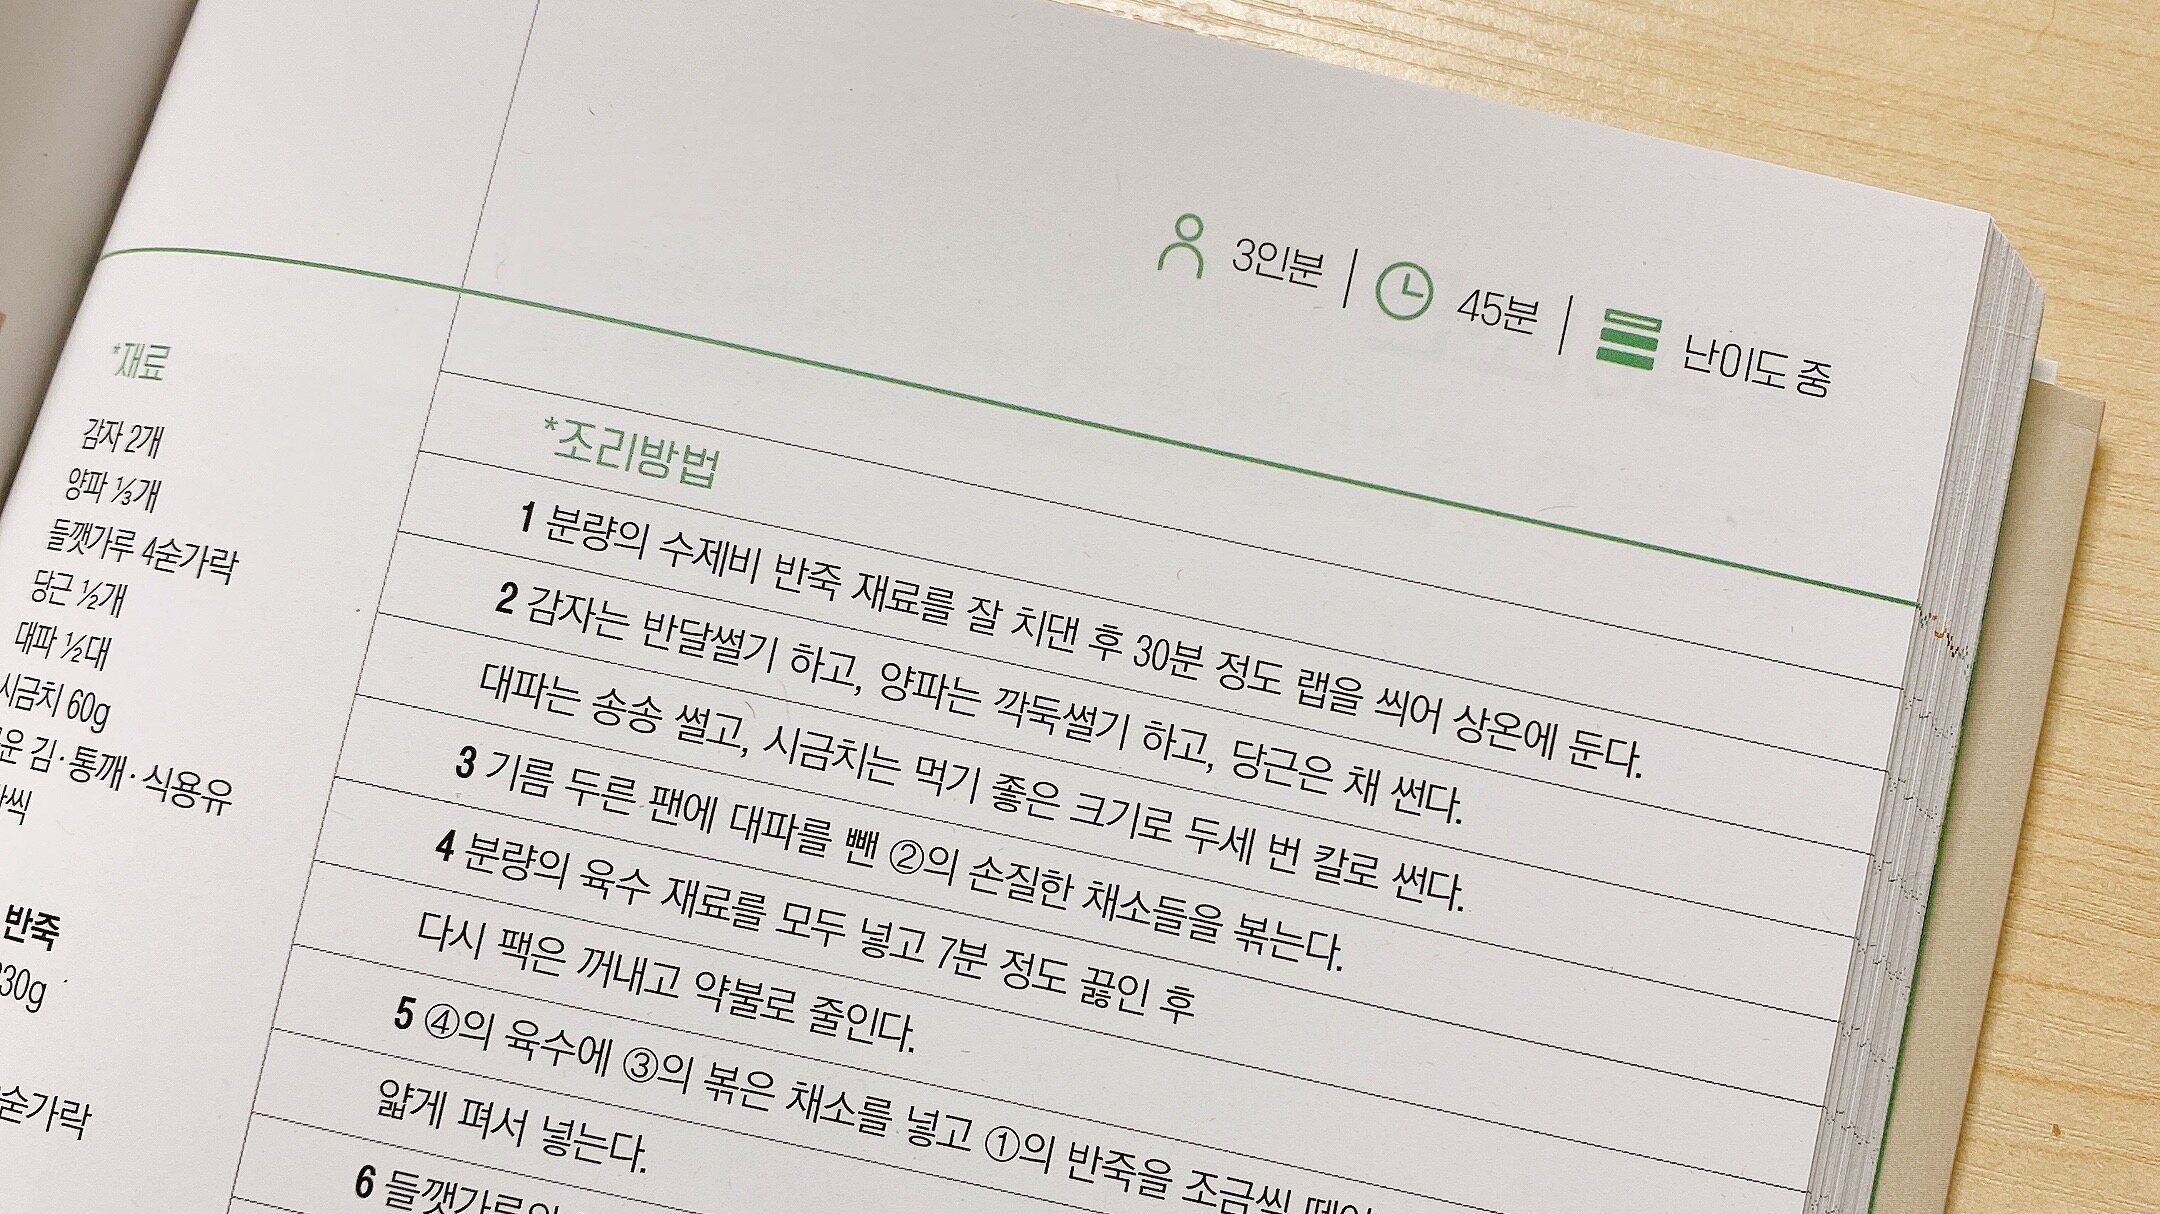 3인분 | 45분 | 난이도 중
*재료
감자 2개
양파 ⅓개
들깻가루 4숟가락
당근 ½개
대파 ½대
시금치 60g
김·통깨·식용유
반죽
숟가락
*조리방법
1 분량의 수제비 반죽 재료를 잘 치댄 후 30분 정도 랩을 씌어 상온에 둔다.
2 감자는 반달썰기 하고, 양파는 깍둑썰기 하고, 당근은 채 썬다.
대파는 송송 썰고, 시금치는 먹기 좋은 크기로 두세 번 칼로 썬다.
3 기름 두른 팬에 대파를 뺀 ②의 손질한 채소들을 볶는다.
4 분량의 육수 재료를 모두 넣고 7분 정도 끓인 후
다시 팩은 꺼내고 약불로 줄인다.
5 ④의 육수에 ③의 볶은 채소를 넣고 ①의 반죽을 조금씩
얇게 펴서 넣는다.
6